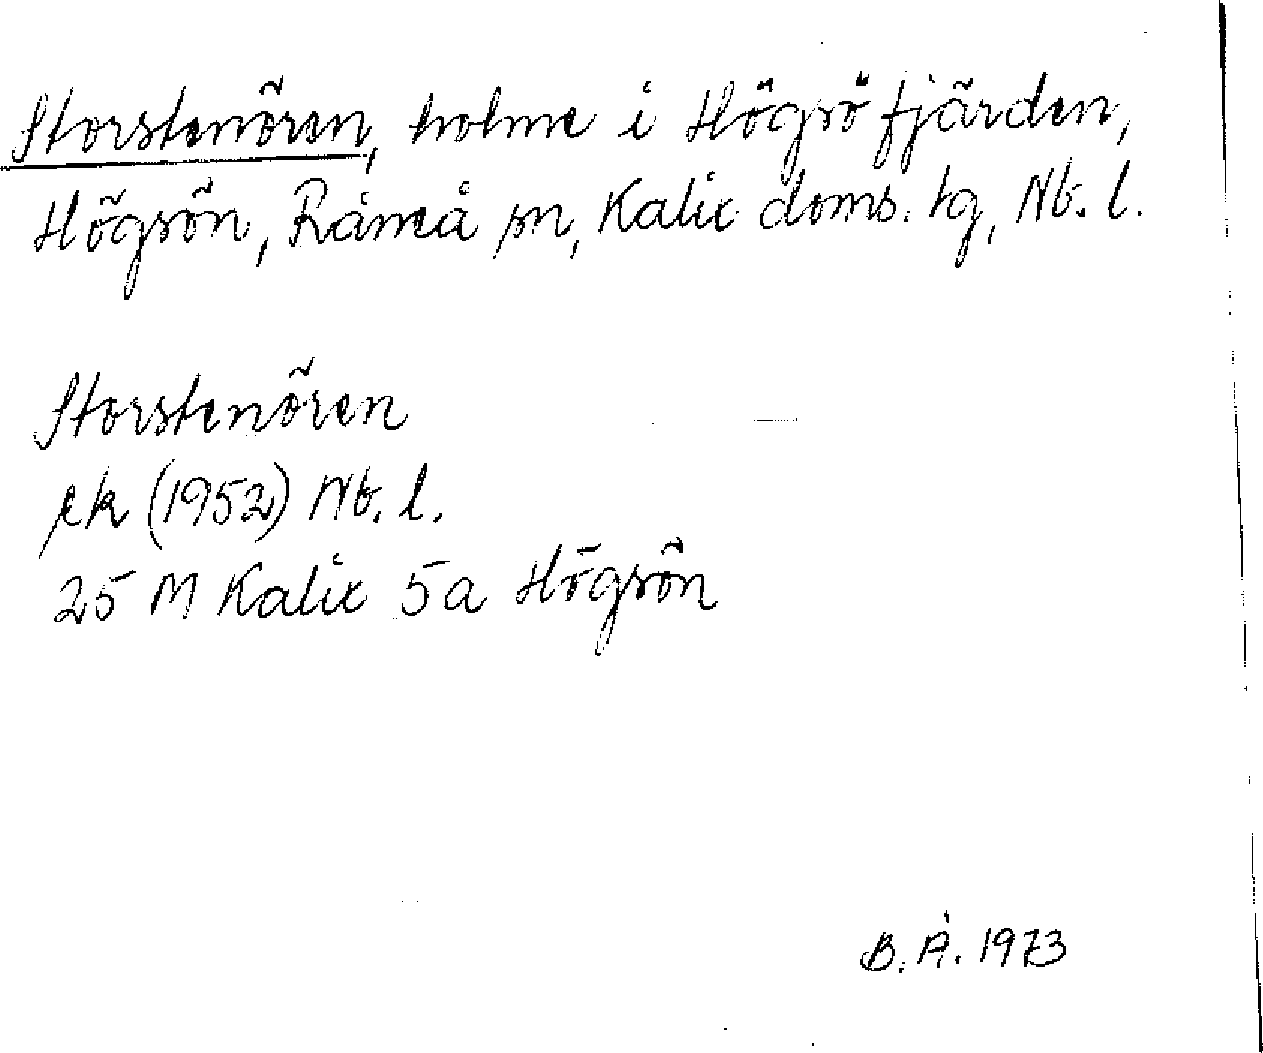 Storstenören, holme i Högsöfjärden,
Högsön, Råneå sn, Kalix doms. tg, Nb. l.
Storstenören
ek (1952) Nb. l.
25 M Kalix 5a Högsön
B. Å. 1973